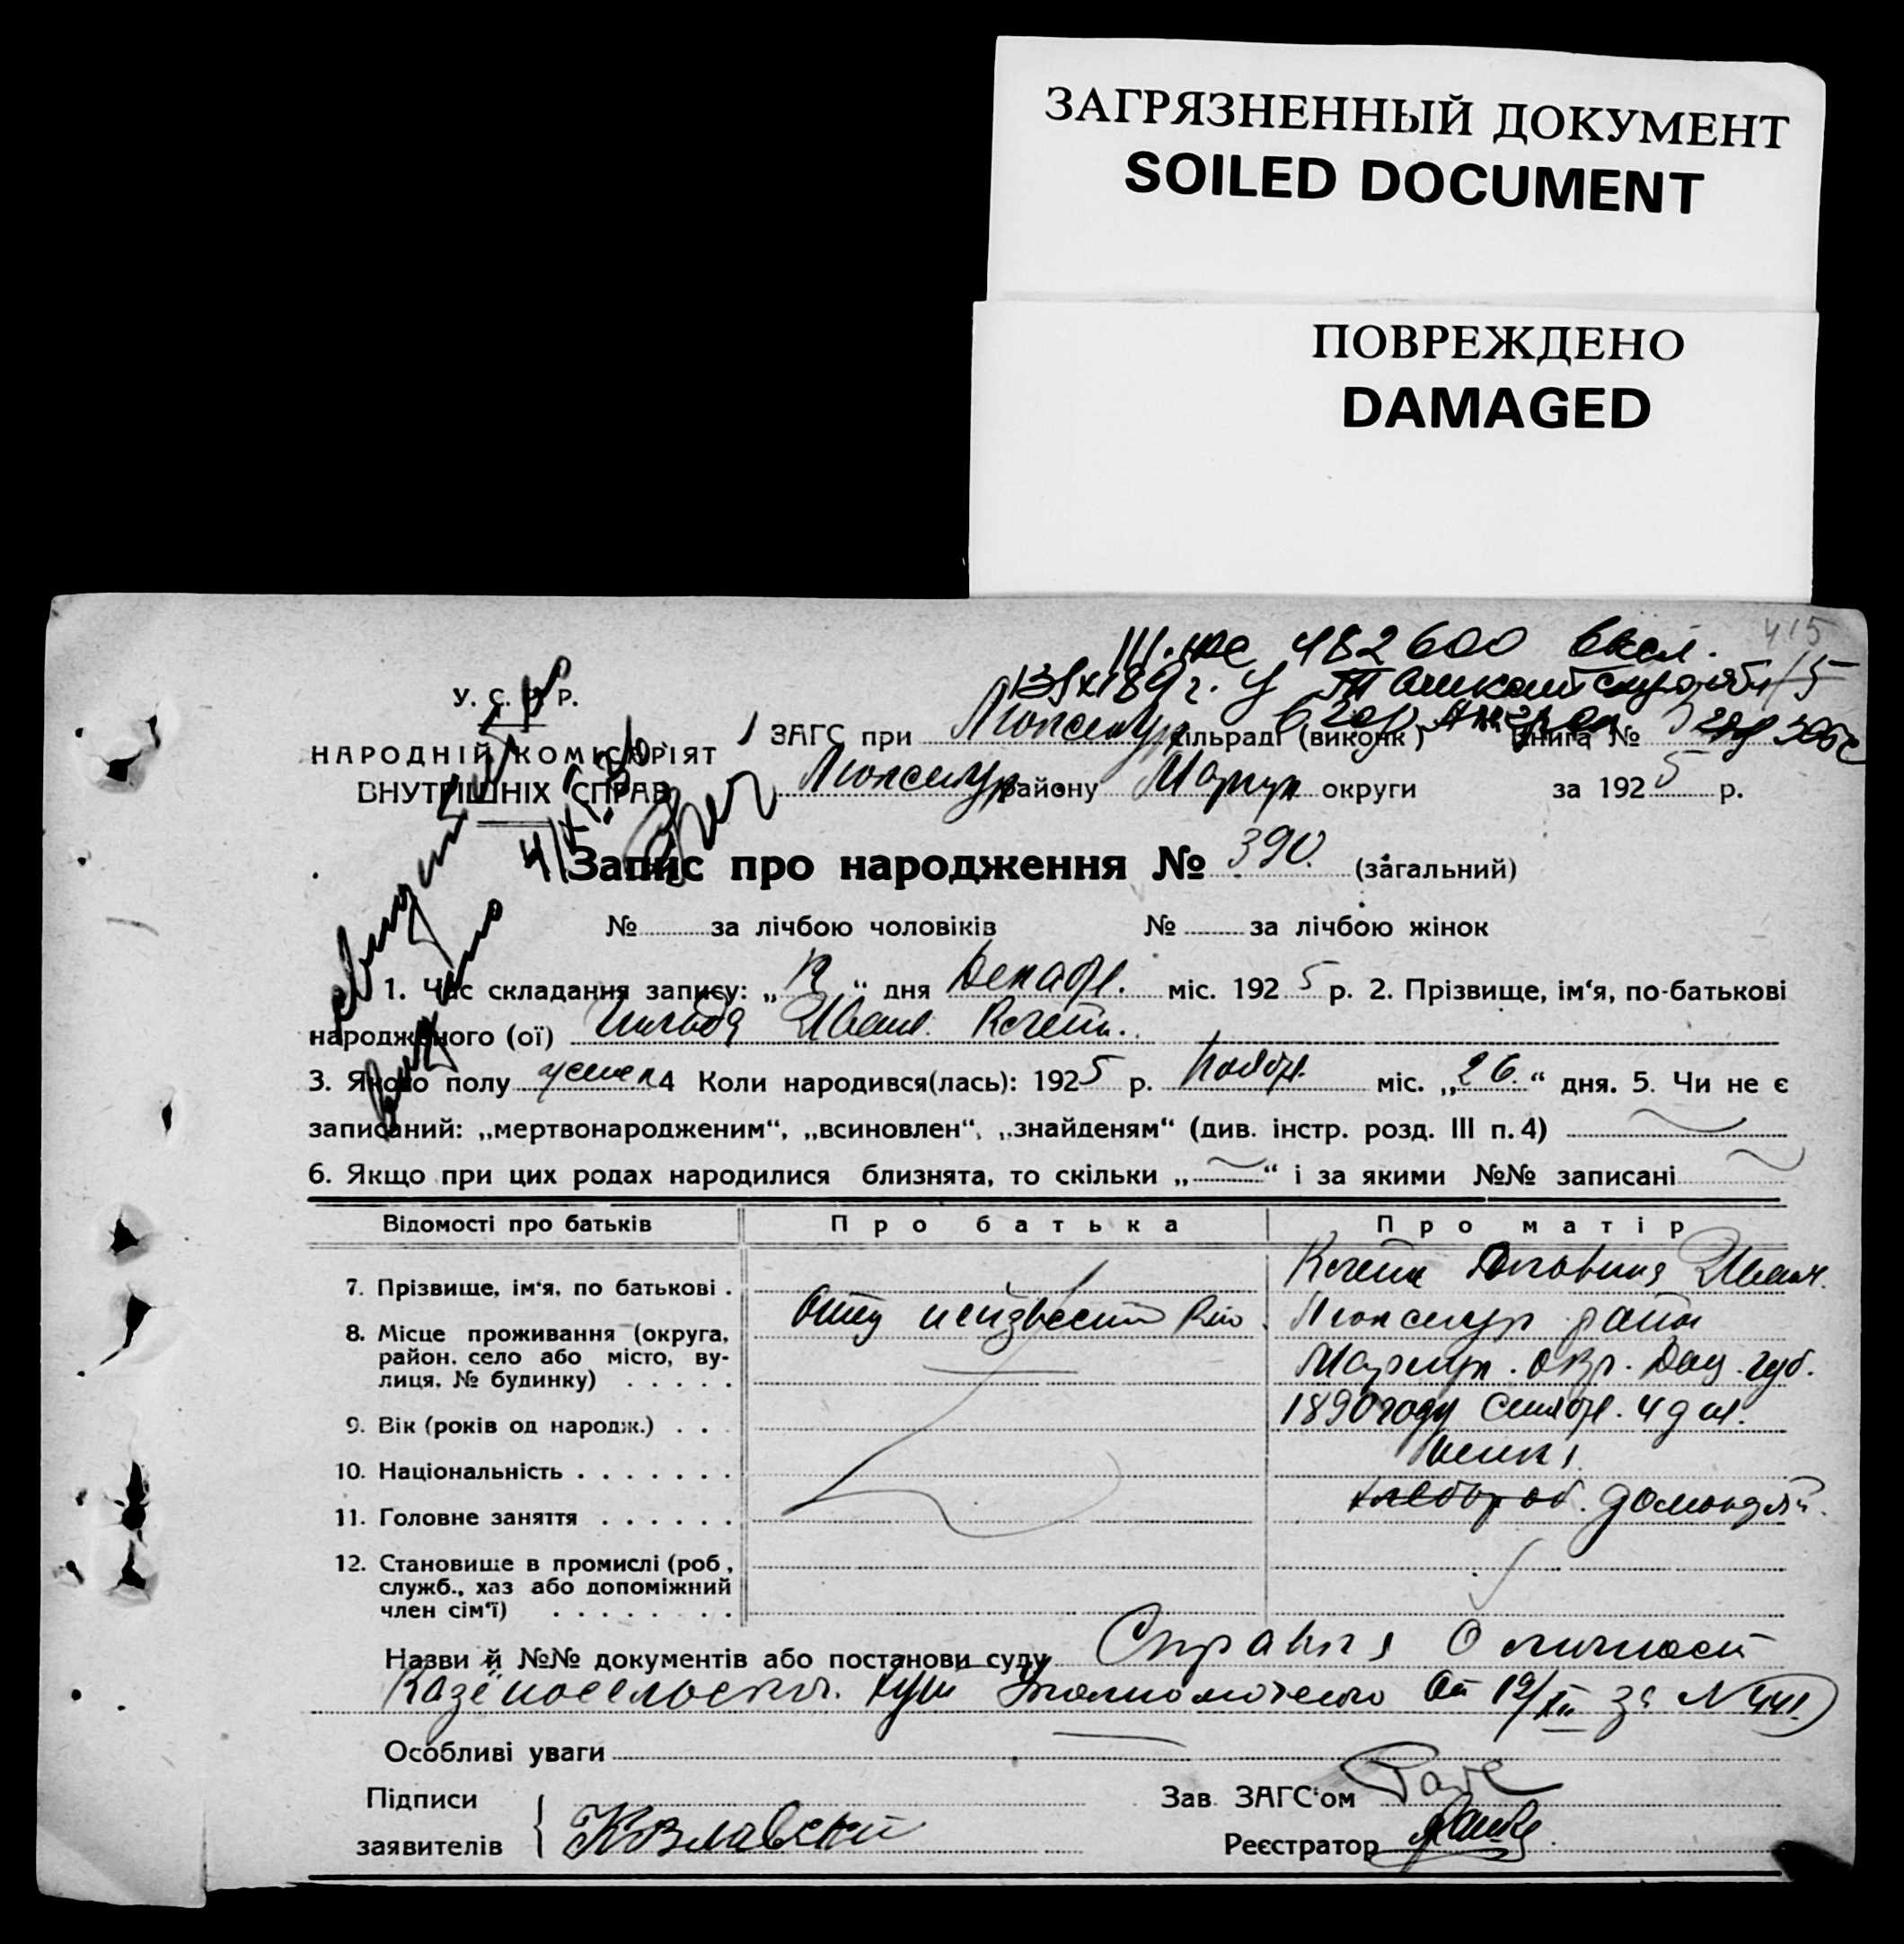 ЗАГРЯЗНЕННЫЙ ДОКУМЕНТ
SOILED DOCUMENT
ПОВРЕЖДЕНО
DAMAGED
415
482600
У. С. Р. Р.
НАРОДНІЙ КОМІСАРІЯТ
ВНУТРІШНІХ СПРАВ
ЗАГС при Люксембур сільраді (виконк) Книга №
Люксембур району Мариуп округи за 1925 р.
Запис про народження № 390. (загальний)
№ за лічбою чоловіків № за лічбою жінок
1. Час складання запису: „12“ дня Декабр. міс. 1925 р. 2. Прізвище, ім‘я, по-батькові
народженого (ої) Гильда Иван.
3. Якого полу женск 4 Коли народився(лась): 1925 р. Ноябр. міс. „26.“ дня. 5. Чи не є
записаний: „мертвонародженим“, „всиновлен“, „знайденям“ (див. інстр. розд. III п. 4)
6. Якщо при цих родах народилися близнята, то скільки „ “ і за якими №№ записані
Відомості про батьків Про батька Про матір
7. Прізвище, ім‘я, по батькові . Иван.
Отец неизвестн Люксембур район
8. Місце проживання (округа,
район, село або місто, ву-
лиця, № будинку) . . . . . Мариуп. окр. Дон. губ.
9. Вік (років од народж.) . . . 1890 году Сентябр. 4 дня.
10. Національність . . . . . . . немка
11. Головне заняття . . . . . . хлебороб. домохозяй.
12. Становище в промислі (роб,
служб., хаз або допоміжний
член сім‘ї) . . . . . . . .
Назви й №№ документів або постанови суду Справка о личности
Уполномоченого от 12/XII за N 441
Особливі уваги
Підписи Зав. ЗАГС‘ом
заявителів { Козлавский Реєстратор